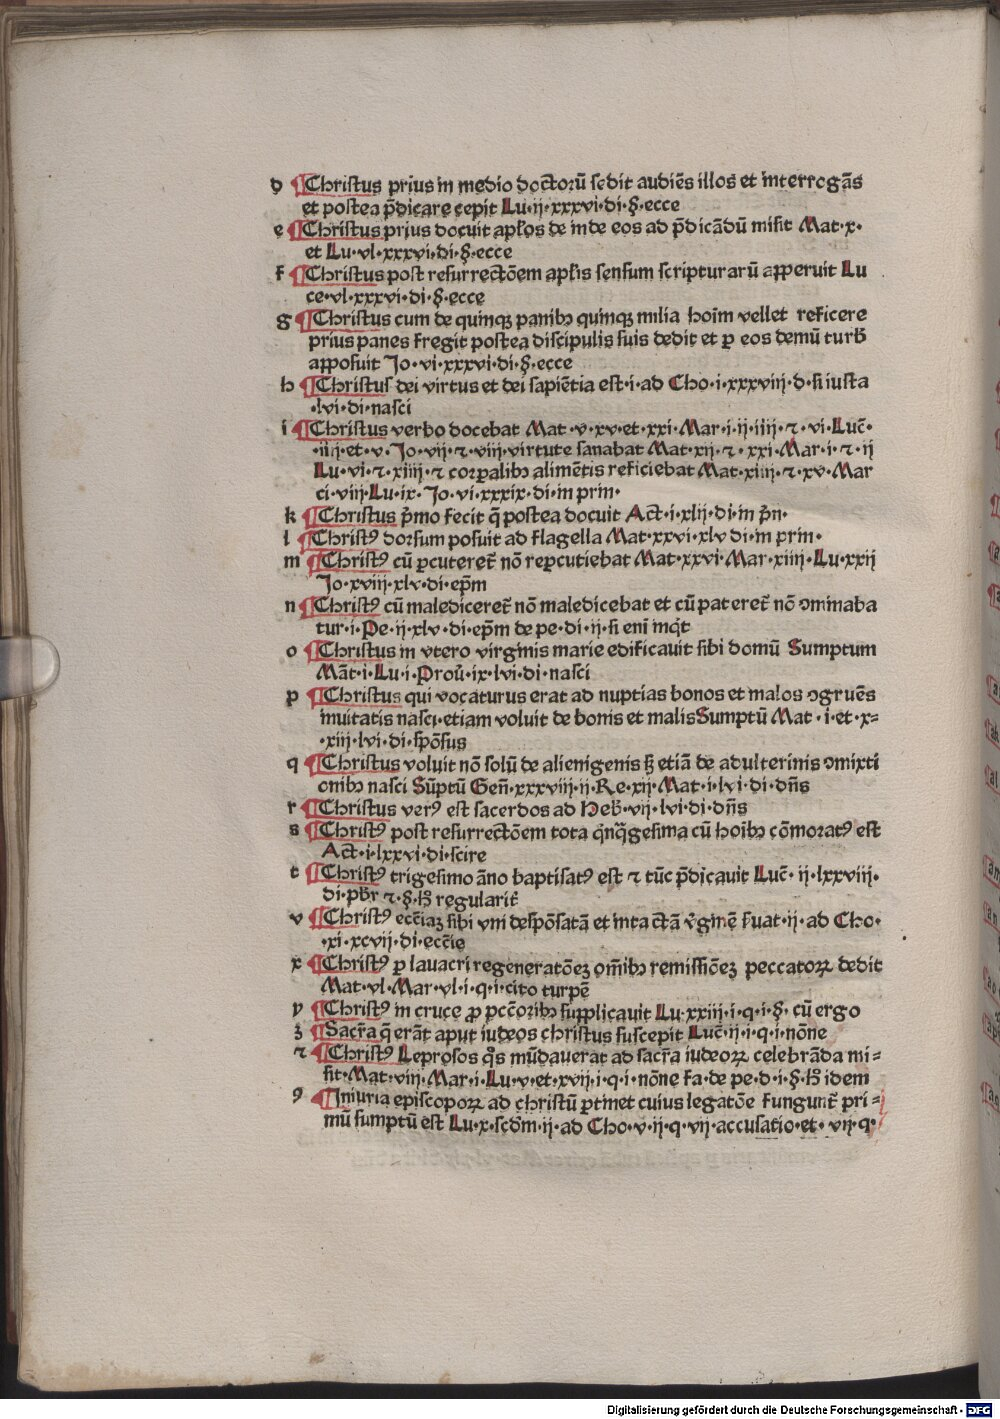 d ¶Christus prius in medio doctorū sedit audiēs illos et interrogās
et postea p̄dicare cepit Lu·ii·xxxvi·di·§·ecce
e ¶Christus prius docuit apl̄os de inde eos ad p̄dicādū misit Mat·x·
et Lu·vl·xxxvi·di·§·ecce
f ¶Christus post resurrectōem apl̄is sensum scripturarū apperuit Lu
ce·vl·xxxvi·di·§·ecce
g ¶Christus cum de quinqꝫ panibꝫ quinqꝫ milia hoīm vellet reficere
prius panes fregit postea discipulis suis dedit et ꝑ eos demū turb̄
apposuit Jo·vi·xxxvi·di·§·ecce
h ¶Christus dei virtus et dei sapiētia est·i·ad Cho·i·xxxviij·d·si iusta
·lvi·di·nasci
i ¶Christus verbo docebat Mat·v·xv·et·xxi·Mar·i·ii·iiii·⁊·vi·Luc̄·
·iiij·et·v·Jo·vij·⁊·viij·virtute sanabat Mat·xij·⁊·xxi·Mar·i·⁊·ij
Lu·vi·⁊·xiiij·⁊ corꝑalibꝫ alimētis reficiebat Mat·xiiij·⁊·xv·Mar
ci·viij·Lu·ix·Jo·vi·xxxix·di·in prin·
k ¶Christus p̄mo fecit q̄ postea docuit Act·i·xlij·di·in p̄n·
l ¶Christꝰ dorsum posuit ad flagella Mat·xxvi·xlv di·in prin·
m ¶Christꝰ cū ꝑcuteret̄ nō reꝑcutiebat Mat·xxvi·Mar·xiiij·Lu·xxij
Jo·xviij·xlv·di·ep̄m
n ¶Christꝰ cū malediceret̄ nō maledicebat et cū pateret̄ nō ꝯminaba
tur·i·Pe·ij·xlv·di·ep̄m de pe·di·ij·si eni inq̄t
o ¶Christus in vtero virginis marie edificauit sibi domū Sumptum
Māt·i·Lu·i·Prou̅·ix·lvi·di·nasci
p ¶Christus qui vocaturus erat ad nuptias bonos et malos ꝯgruēs
inuitatis nasci·etiam voluit de bonis et malis Sumptū Mat·i·et·x-
·xiij·lvi·di·spōsus
q ¶Christus voluit nō solū de alienigenis sꝫ etiā de adulterinis ꝯmixti
onibꝫ nasci Sūptū Gen̄·xxxviij·ij·Re·xij·Mat·i·lvi·di·dn̄s
r ¶Christus verꝰ est sacerdos ad Heb̄·vij·lvi·di·dn̄s
s ¶Christꝰ post resurrectōem tota q̄nq̄gesima cū hoībꝫ cōmoratꝰ est
Act·i·lxxvi·di·scire
t ¶Christꝰ trigesimo āno baptisatꝰ est ⁊ tūc p̄dicauit Luc̄·ij·lxxviij·
di·pb̄r ⁊·§·hꝫ regularit̄
v ¶Christꝰ ecc̄iaꝫ sibi vni despōsatā et inta ctā v̄ginē fuat·ij·ad Cho·
·xi·xcvij·di·ecc̄ie
x ¶Christꝰ ꝑ lauacri regeneratōeꝫ om̄ibꝫ remissiōeꝫ peccatoꝝ dedit
Mat·vl·Mar·vl·i·q·i·cito turpē
y ¶Christꝰ in cruce ꝓ pcc̄oribꝫ supplicauit Lu·xxiij·i·q·i·§·cū ergo
ꝫ ¶Sacr̄a q̄ erāt aput iudeos christus suscepit Luc̄·ij·i·q·i·nōne
⁊ ¶Christꝰ Leprosos q̄s mūdauerat ad sacr̄a iudeoꝝ celebrāda mi-
sit·Mat·viij·Mar·i·Lu·v·et·xvij·i·q·i·nōne fa·de pe·d·i·§·hꝫ idem
ꝯ ¶Iniuria episcopoꝝ ad christū ꝑtinet cuius legatōe fungunt̄ pri-
mū sumptū est Lu·x·scd̄m·ij·ad Cho·v·ij·q·vij·accusatio·et·vij·q·
Digitalisierung gefördert durch die Deutsche Forschungsgemeinschaft - DFG